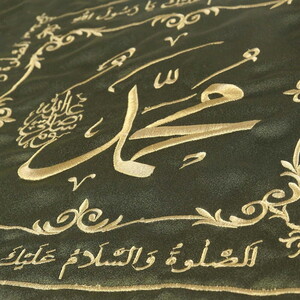 عليك يا رسول الله
محمد
صلى الله عليه وسلم
الصلوة والسلام عليك